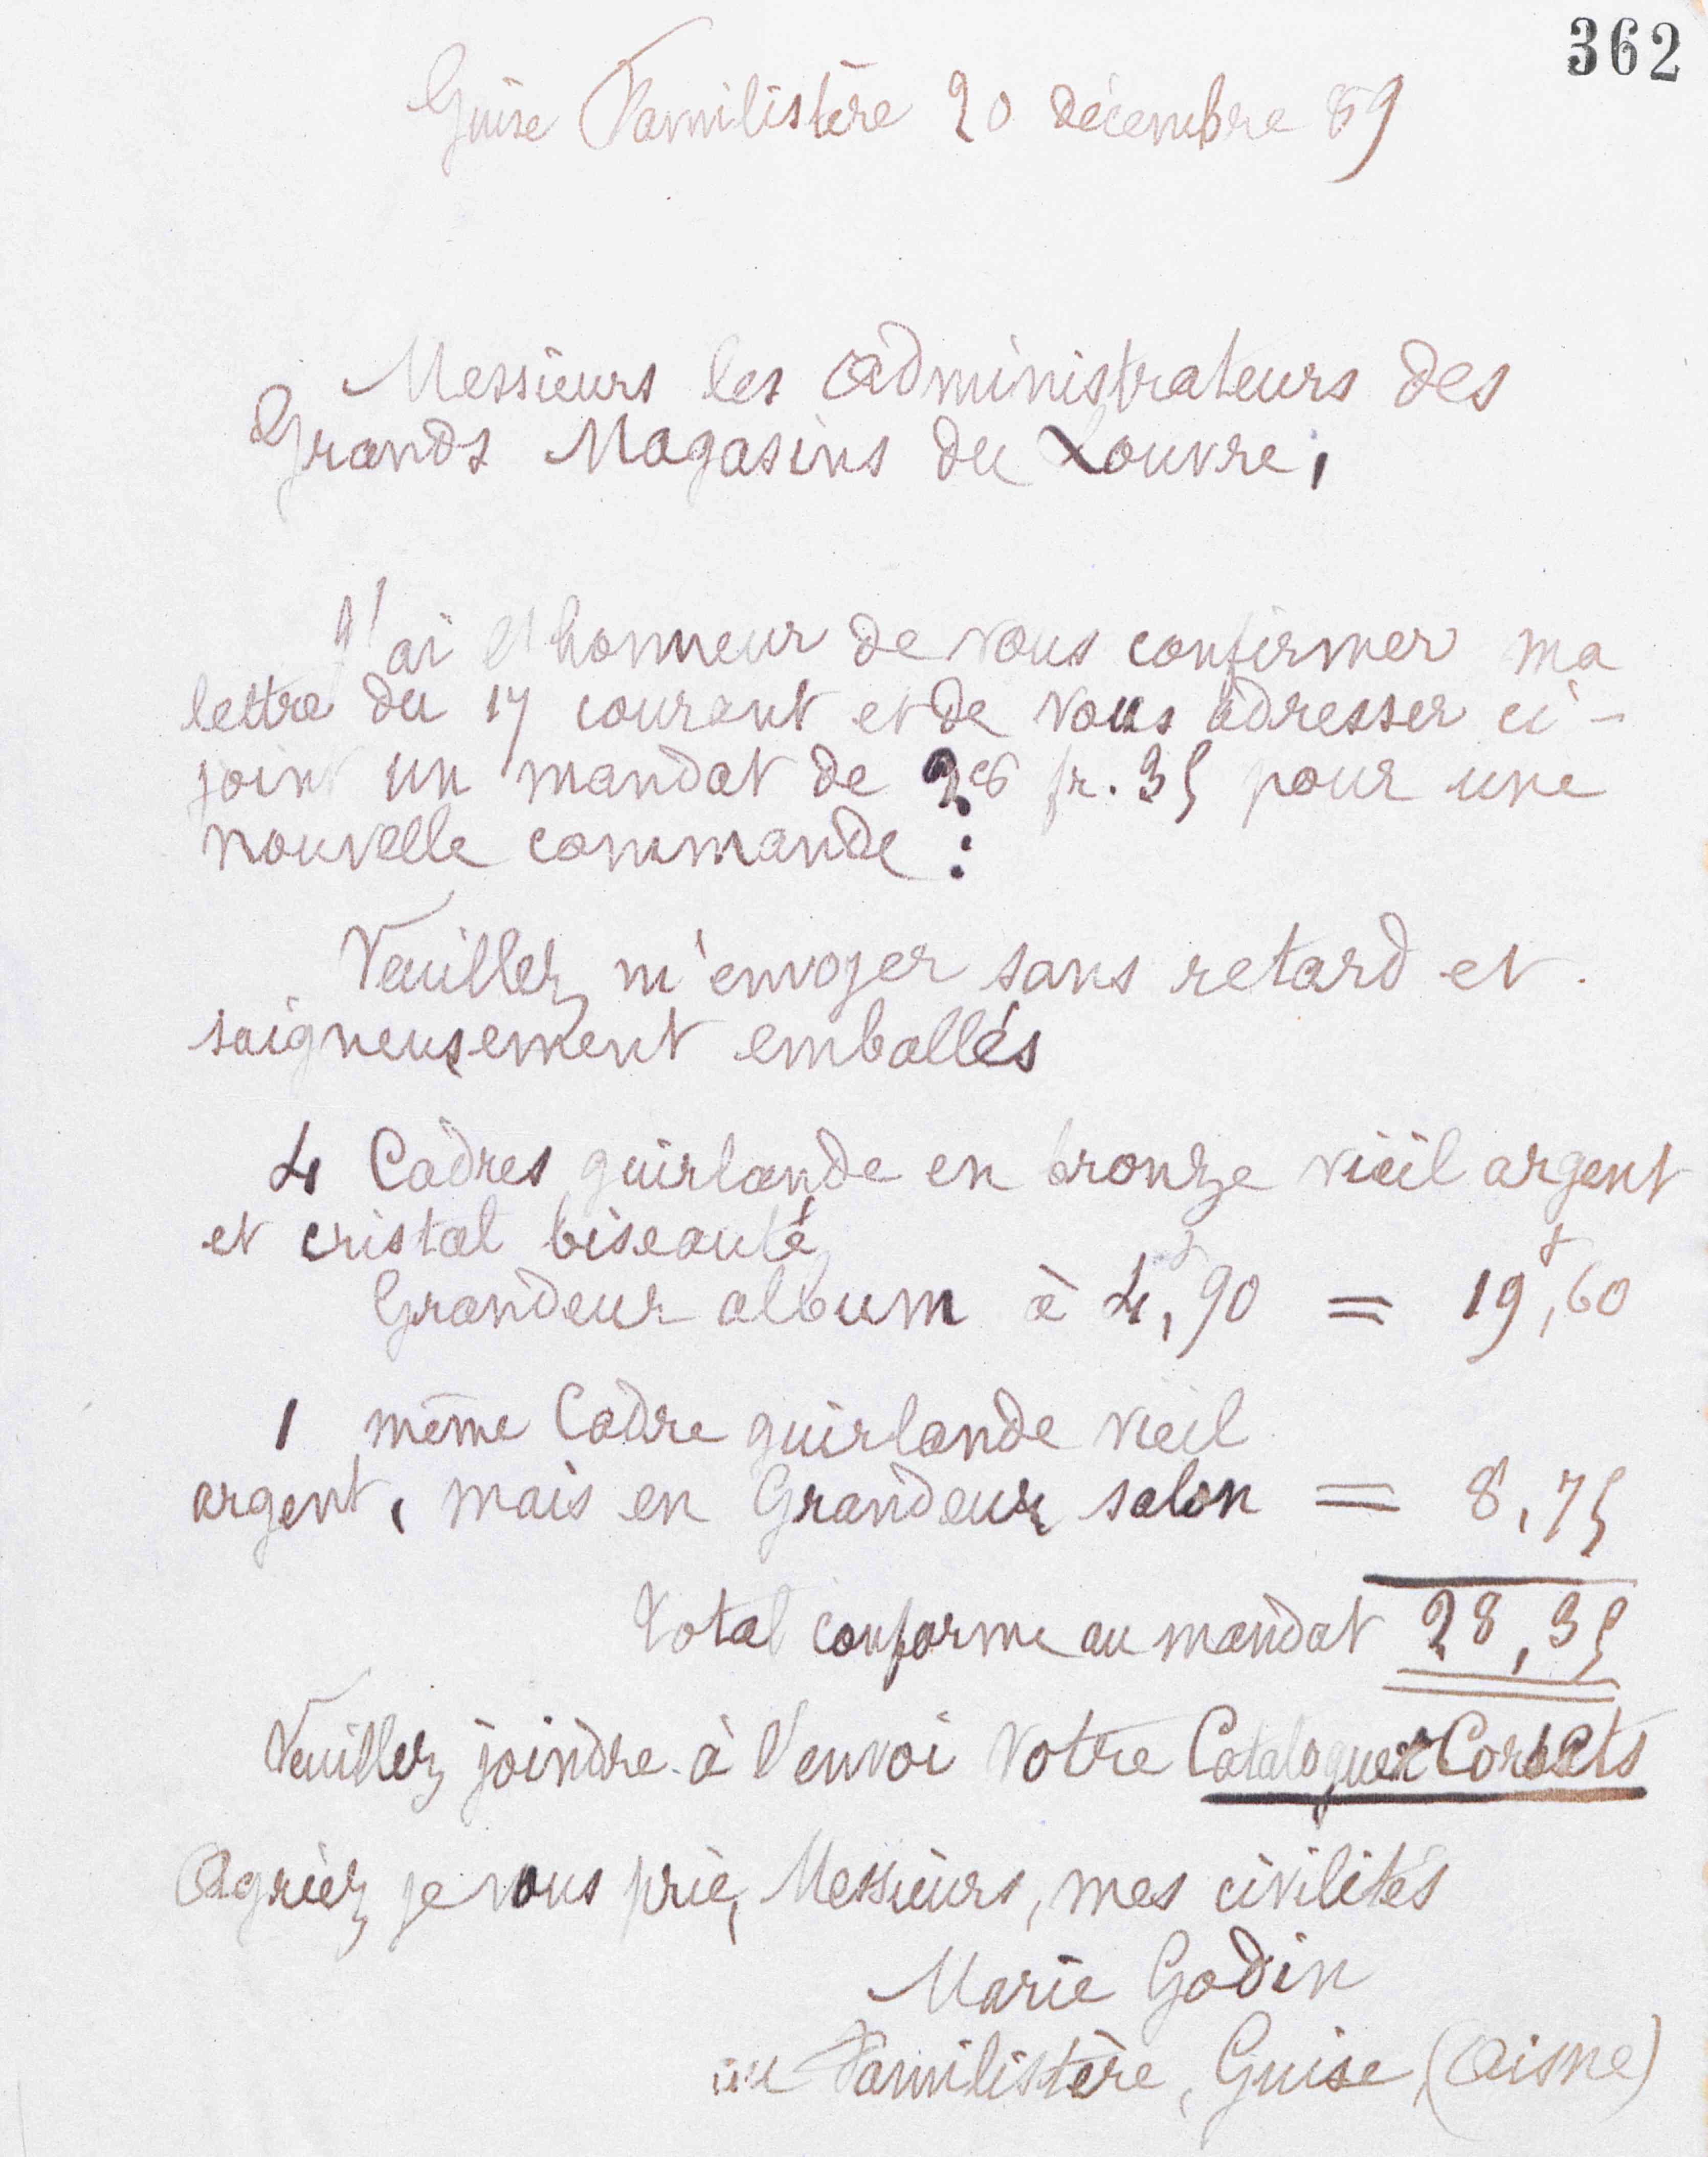 362
Guise Familistère 20 décembre 89
Messieurs les administrateurs des
Grands Magasins du Louvre,
J'ai l'honneur de vous confirmer ma
lettre du 17 courant et de vous adresser ci-
joint un mandat de 28 fr. 35 pour une
nouvelle commande :
Veuillez m'envoyer sans retard et
soigneusement emballés
4 Cadres guirlande en bronze vieil argent
et cristal biseauté,
Grandeur album à 4,f90 = 19,f60
1 même Cadre guirlande vieil
argent, mais en Grandeur salon = 8,75
Total conforme au mandat 28,35
Veuillez joindre à l'envoi votre Catalogue Corsets
Agréez, je vous prie, Messieurs, mes civilités
Marie Godin
au Familistère, Guise (Aisne)